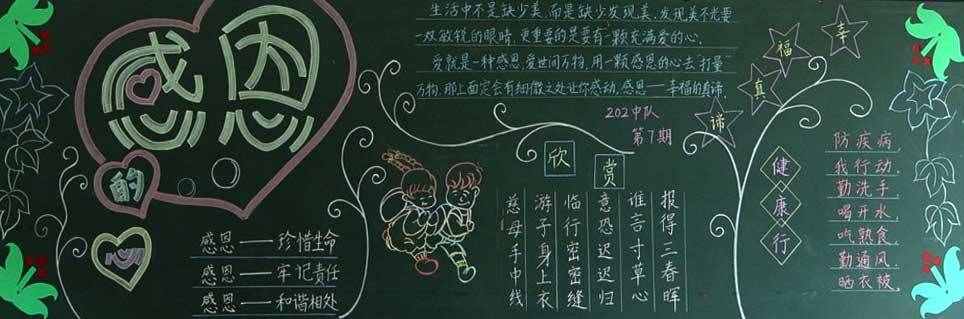 感恩
的
心
感恩——珍惜生命
感恩——牢记责任
感恩——和谐相处
生活中不是缺少美,而是缺少发现美,发现美不光要
一双敏锐的眼睛,更重要的是要有一颗充满爱的心。
爱就是一种感恩,爱世间万物,用一颗感恩的心去"打量"
万物,那上面定会有细微之处让你感动,感恩——幸福的真谛
202中队
第7期
欣赏
慈母手中线
游子身上衣
临行密密缝
意恐迟迟归
谁言寸草心
报得三春晖
幸福真谛
健康行
防疾病
我行动
勤洗手
喝开水
吃熟食
勤通风
晒衣被